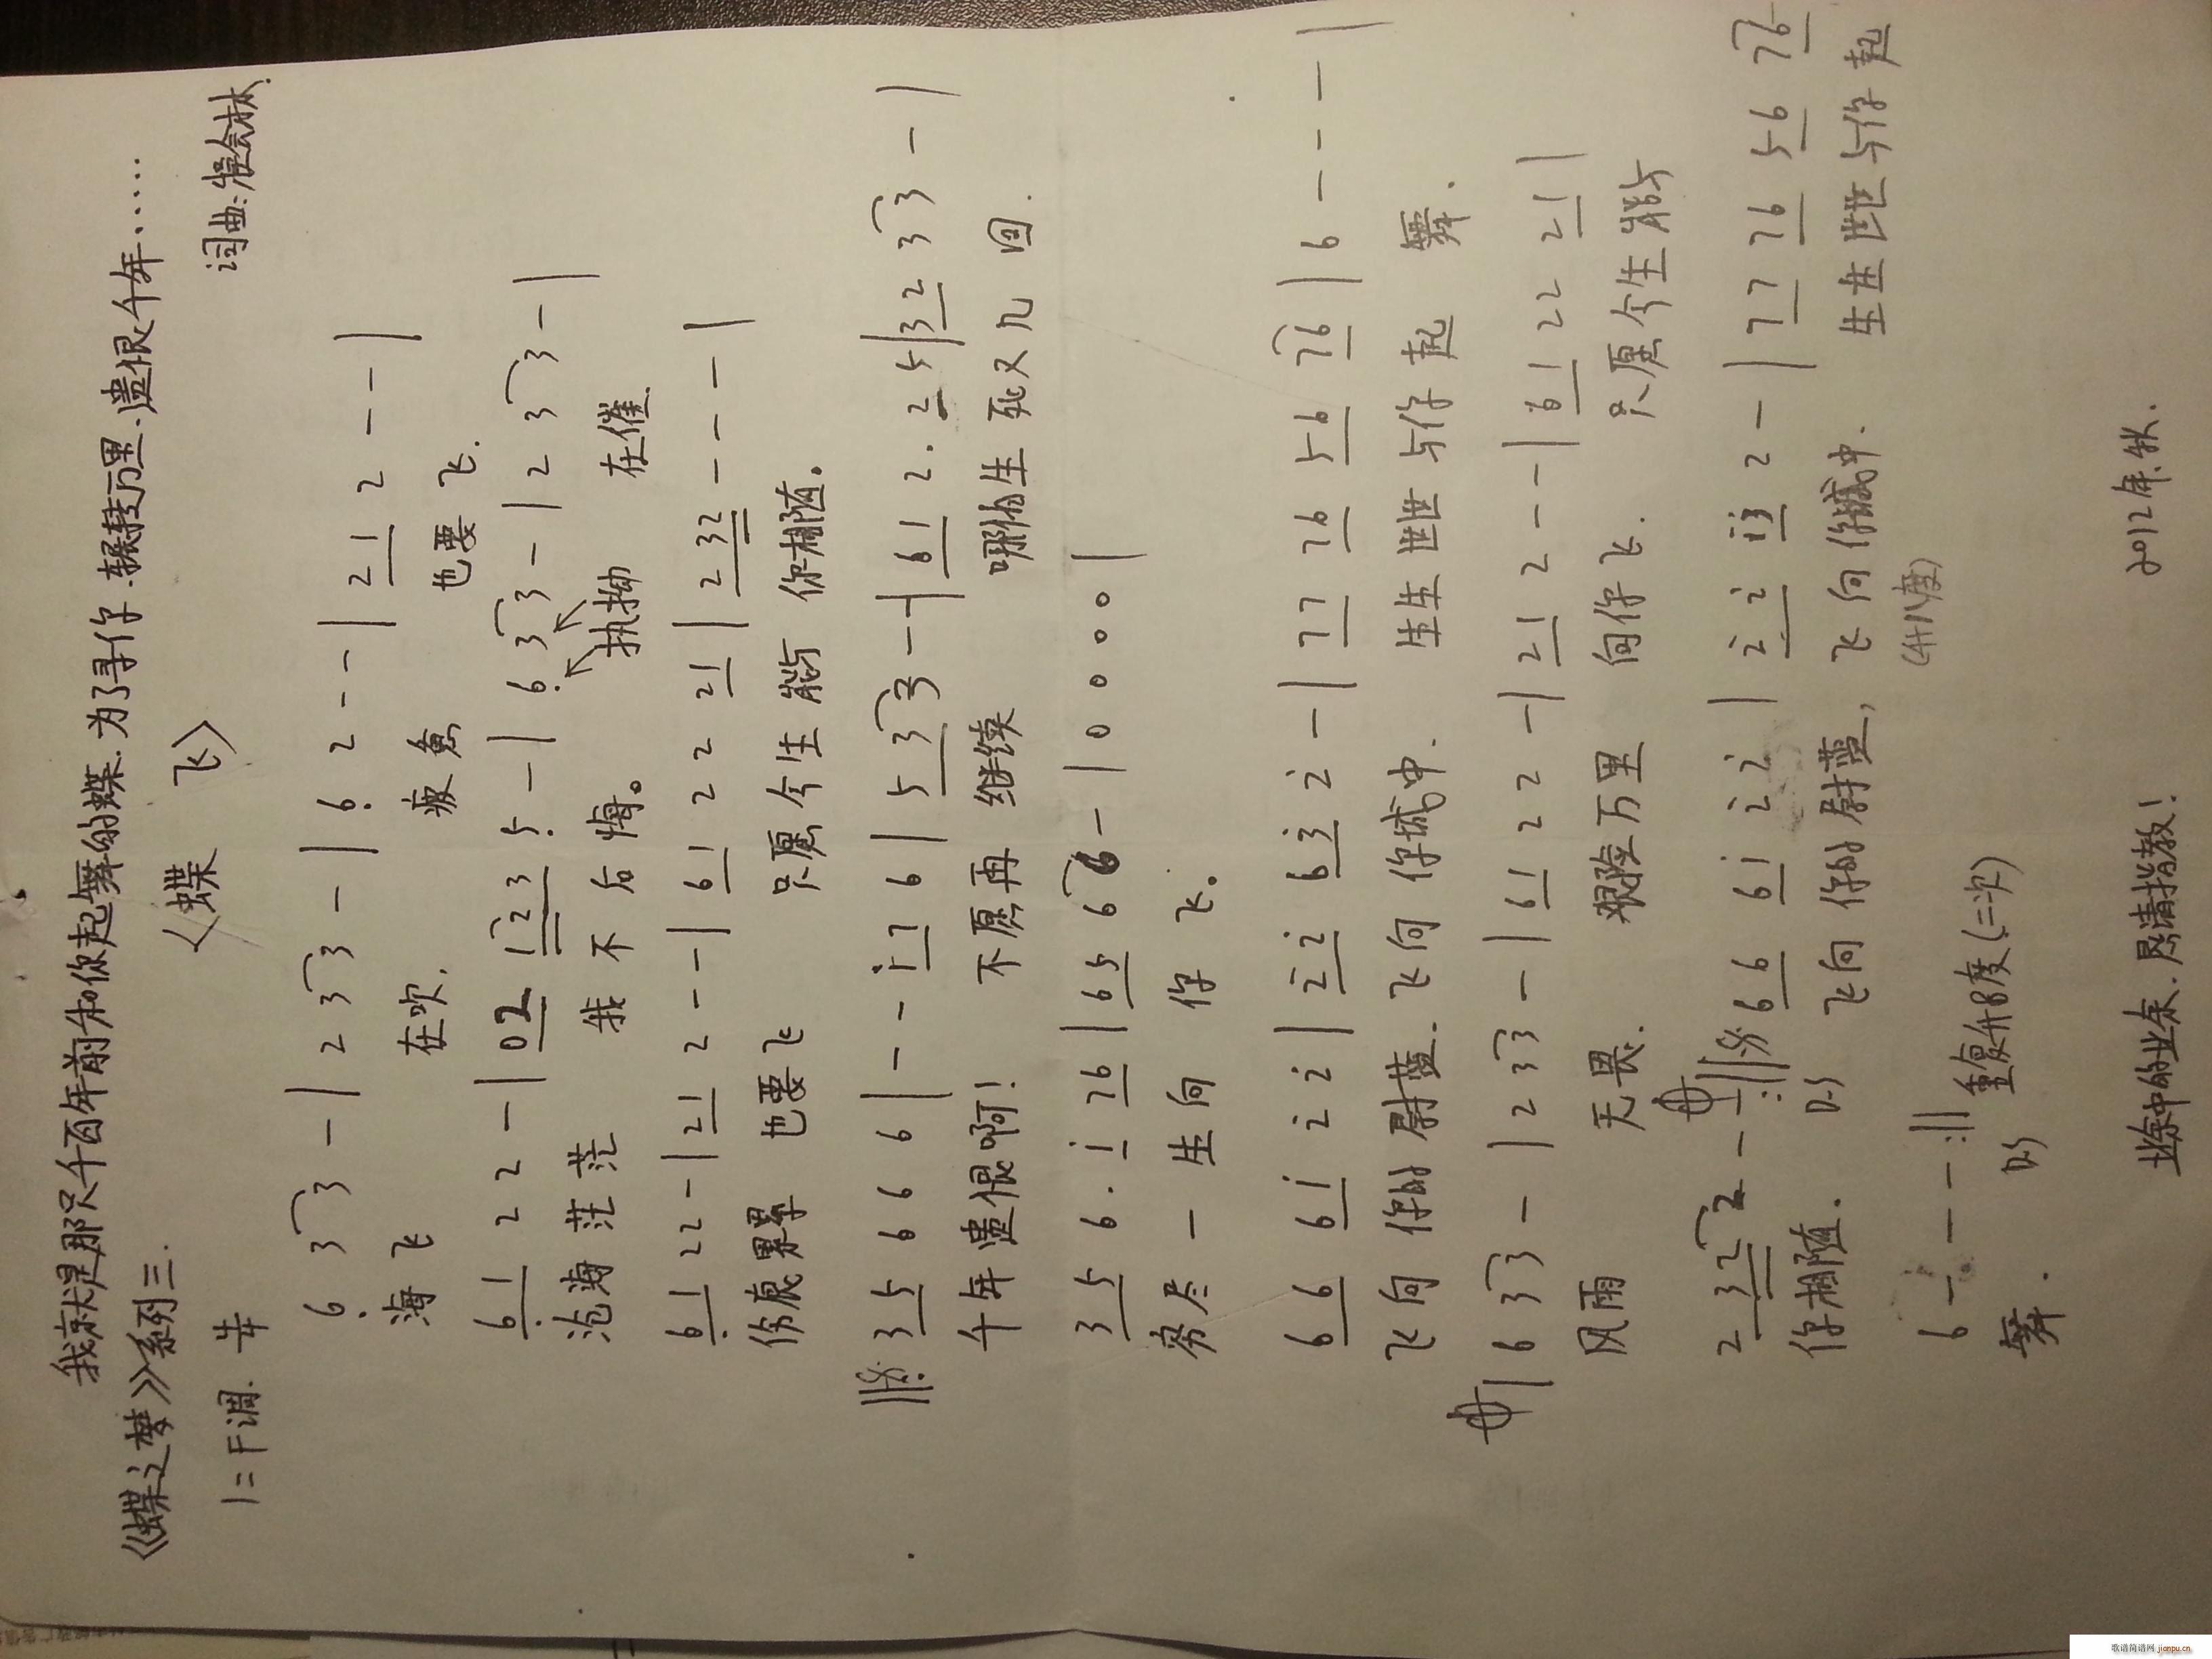 我就是那只千百年前和你起舞的蝶.为了寻你.辗转万里.遗恨千年......
《蝶之梦》系列三.
〈蝶 飞〉
1=F调. 词曲:
6̣ 3 3 - | 2 3 3 - | 6̣ 2 - - | 2 1 2 - - |
海飞 在吹. 疲惫 也要飞.
6̣ 1 2 2 - | 0 2 1 2 3 5̣ - | 6̣ 3 3 - | 2 3 3 - |
沧海茫茫 我不后悔。 执拗 在催
6̣ 1 2 2 - | 2 1 2 - - | 6 1 2 2 2 1 | 2 3 2 - - - |
伤痕累累 也要飞 只愿今生能与 你相随。
3 5 6 6 6 | - - i 7 6 | 5 3 3 - - | 6 1 2 . 2 5 | 3 2 3 3 - |
千年遗恨啊! 不愿再 继续 哪怕生死又几回.
3 5 6 . i 7 6 | 6 5 6 6 - | 0 0 0 0 |
穷尽一生向你飞。
6 6 6 i 2̇ 2̇ | 2̇ 2̇ 6 3̇ 2̇ - | 7 7 7 6 5 6 7 6 | 6 - - - |
飞向你的尉蓝.飞向你城中. 生生世世与你起舞.
| 6 3 3 - | 2 3 3 - | 6 1 2 2 - | 2 1 2 - - | 6 1 2 2 2 1 |
风雨 无畏. 艰险万里 向你飞. 只愿今生能与
2 3 2 2 - - :|| 6 6 6 i 2̇ 2̇ | 2̇ 2̇ i 3̇ 2 - | 7 7 7 6 5 6 7 6
你相随. D.S 飞向你的尉蓝,飞向你城中. 生生世世与你起
(升八度)
6 - - - :|| 重复升8度(二次)
舞. D.S
业余中的业余.恳请指教! 2012年.秋.
歌谱简谱网 jianpu.cn